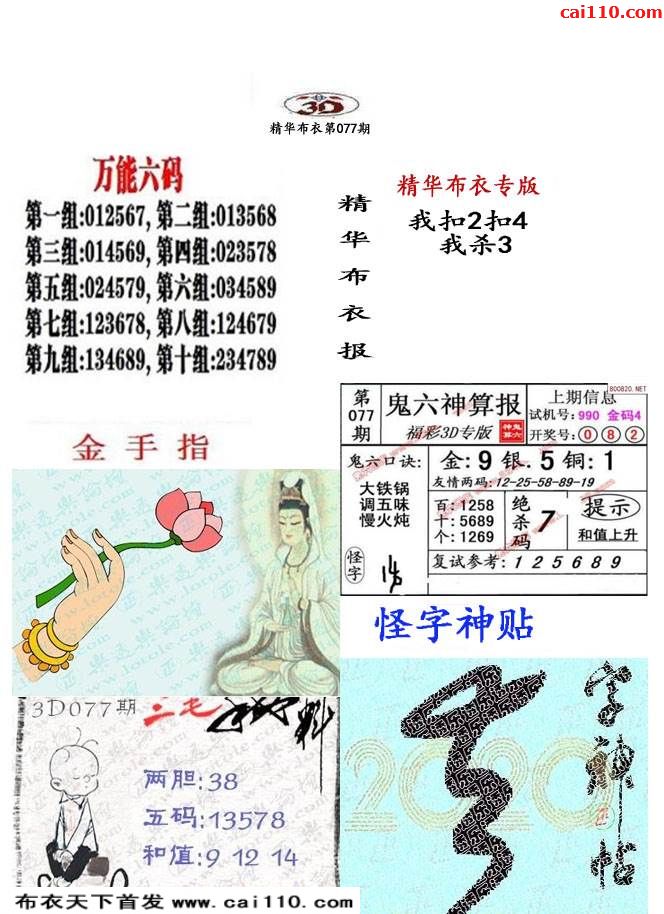 cai110.com
3D
精华布衣第077期
万能六码
第一组:012567, 第二组:013568
第三组:014569, 第四组:023578
第五组:024579, 第六组:034589
第七组:123678, 第八组:124679
第九组:134689, 第十组:234789
精华布衣报
精华布衣专版
我扣2扣4
我杀3
金手指
800820.NET
第077期
鬼六神算报
福彩3D专版
上期信息
试机号: 990 金码4
开奖号: 0 8 2
鬼六口诀:
大铁锅
调五味
慢火炖
怪字
金: 9 银. 5 铜: 1
友情两码:12-25-58-89-19
百: 1258
十: 5689
个: 1269
绝杀码
7
提示
和值上升
复试参考: 1 2 5 6 8 9
怪字神贴
字神帖
2020
3D077期
三毛
两胆:38
五码:13578
和值:9 12 14
布衣天下首发 www.cai110.com